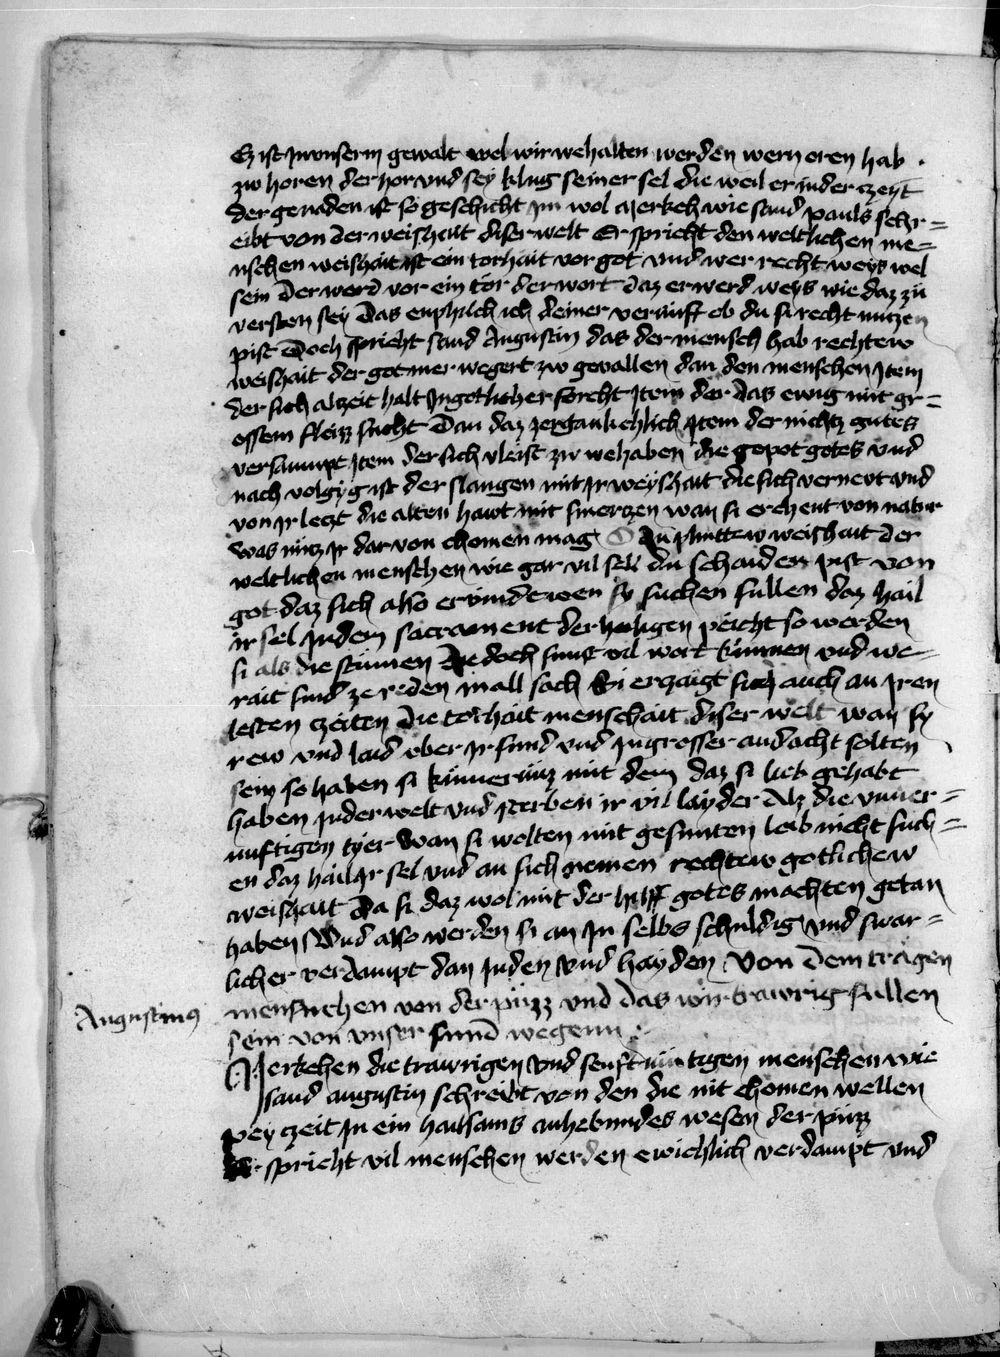 Ez ist in vnserm gewalt wel wir wehalten werden wern oren hab
zw horen der hor vnd sey klug seiner sel die weil er in der czeyt
der genaden ist so geschicht im wol Merkch wie sand pauls schr=
eibt von der weishait diser welt Er spricht den weltlichen me=
nschen weishait ist ein torhait vor got vnd wer recht weys wel
sein der werd vor ein tor der wort daz er werd weys wie daz zu
versten sey Das enphilch ich deiner vernuft ob du si recht nutzen
pist Doch spricht sand Augustin das der mensch hab rechtew
weishait der got mer wegert zw gevallen dan den menschen Item
der sich alzeit halt in gotlicher forcht Item der das ewig mit gr=
ossem fleizz sucht dan daz zergankchlich Item der nichtz gutes
versaumpt Item der sich vleist zw wehaben die gepot gotes vnd
nach volgyg ist der slangen mit ir weyshait die sich vernewt vnd
von ir lect die alten hawt mit smerczen wan si erchent von natur
was nutz ir dar von chomen mag O du plinttew weishait der
weltlichen menschen wie gar vil seli du schaiden pist von
got daz sich also ervindt wen sy suchen sullen daz hail
ir sel in dem sacrament der heiligen peicht so werden
si als die stummen Die doch sunst vil wort kunnen vnd we=
rait sind ze reden in all sach Si erczaigt sich auch an iren
lesten czeiten die torhait menschait diser welt wan sy
rew vnd laid vber ir sund vnd in grosser andacht solten
sein so haben si kumernuz mit dem daz si lieb gehabt
haben in der welt vnd sterben ir vil layder Alz die vnuer=
nuftigen tyer wan si wolten mit gesunten leib nicht such=
en daz hail ir sel vnd an sich nemen rechtew gotlichew
weishait Da si daz wol mit der hilff gotes machten getan
haben Vnd also werden si an in selbs schuldig vnd swar=
licher verdampt dan Juden vnd hayden Von dem tragen
menschen von der puzz vnd das wir trawrig sullen
sein von vnser sund wegenn
Augustinus
Merkchen die trawrigen vnd senftmutigen menschen wie
sand augustin schreibt von den die nit chomen wellen
pey czeit in ein hailsams anhebundes wesen der puzz
Er spricht vil menschen werden ewichlich verdampt vnd